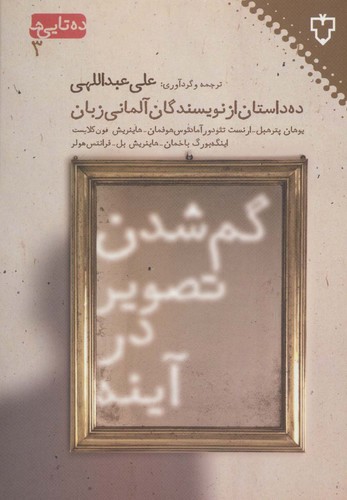 ده‌تایی‌ها
۳
ترجمه و گردآوری: علی عبداللهی
ده داستان از نویسندگان آلمانی زبان
یوهان پتر هبل_ ارنست تئودور آمادئوس هوفمان_ هاینریش فون کلایست
اینگه‌بورگ باخمان_ هاینریش بل_ فرانتس هولر
گم شدن
تصویر
در
آینه